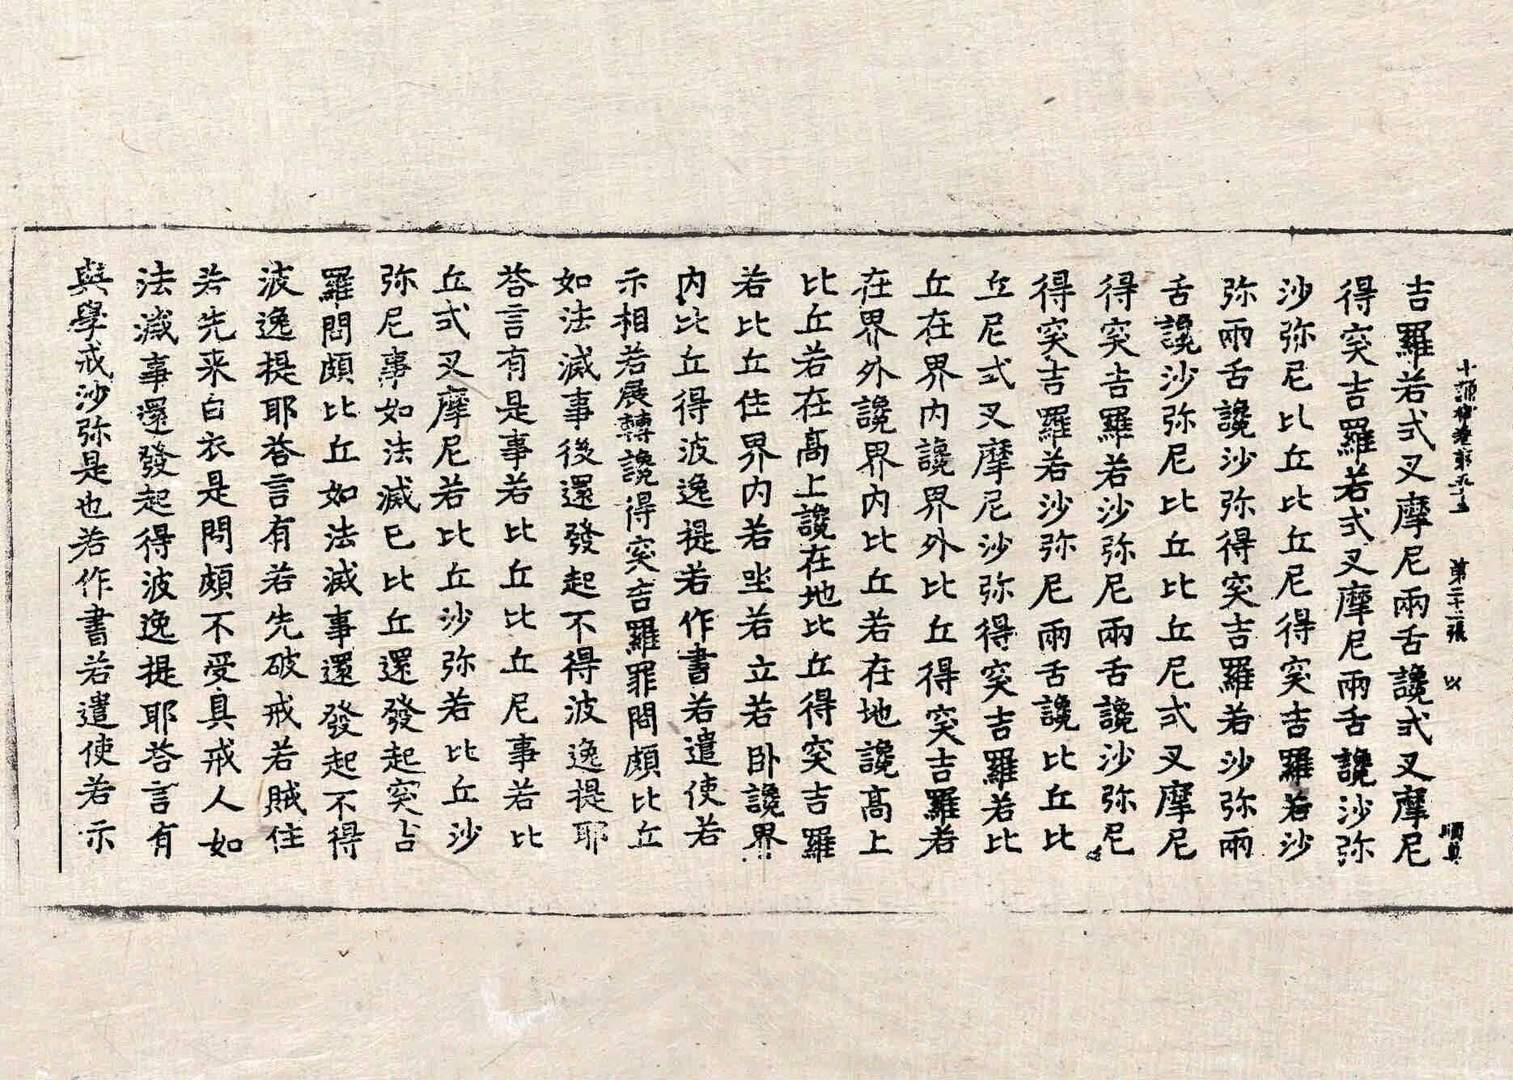 十誦律卷第五十五 第二十二張 以 順真
吉羅若式叉摩尼兩舌讒式叉摩尼
得突吉羅若式叉摩尼兩舌讒沙弥
沙弥尼比丘比丘尼得突吉羅若沙
弥兩舌讒沙弥得突吉羅若沙弥兩
舌讒沙弥尼比丘比丘尼式叉摩尼
得突吉羅若沙弥尼兩舌讒沙弥尼
得突吉羅若沙弥尼兩舌讒比丘比
丘尼式叉摩尼沙弥得突吉羅若比
丘在界内讒界外比丘得突吉羅若
在界外讒界内比丘若在地讒高上
比丘若在高上讒在地比丘得突吉羅
若比丘住界内若坐若立若卧讒界
内比丘得波逸提若作書若遣使若
示相若展轉讒得突吉羅罪問頗比丘
如法滅事後還發起不得波逸提耶
荅言有是事若比丘比丘尼事若比
丘式叉摩尼若比丘沙弥若比丘沙
弥尼事如法滅已比丘還發起突吉
羅問頗比丘如法滅事還發起不得
波逸提耶荅言有若先破戒若賊住
若先来白衣是問頗不受具戒人如
法滅事還發起得波逸提耶荅言有
與學戒沙弥是也若作書若遣使若示